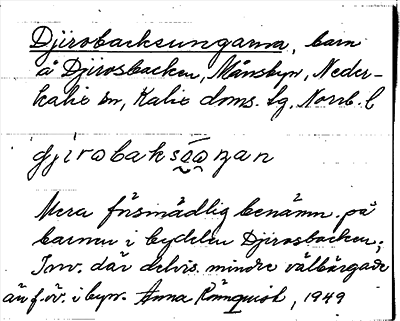 Djirobacksungarna, barn
å Djirosbacken, Månsbyn, Neder-
kalix sn, Kalix doms. lg, Norrb. l
Mera försmädlig benämn. på
barnen i bydelen Djirosbacken;
Inv. där delvis mindre välbärgade
än f. öv. i byn. Anna Rönnquist, 1949